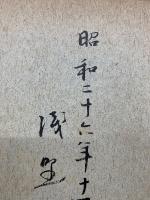 昭和二十六年十
浅野